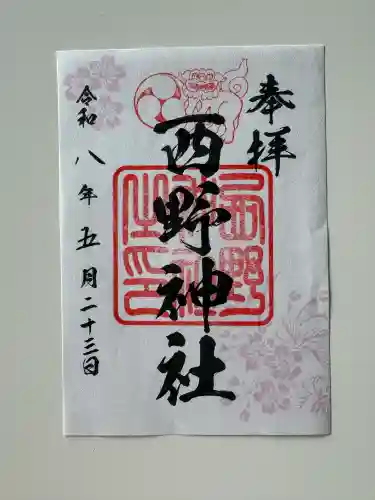 奉拝
西野神社
西野神社之印
令和八年五月二十三日